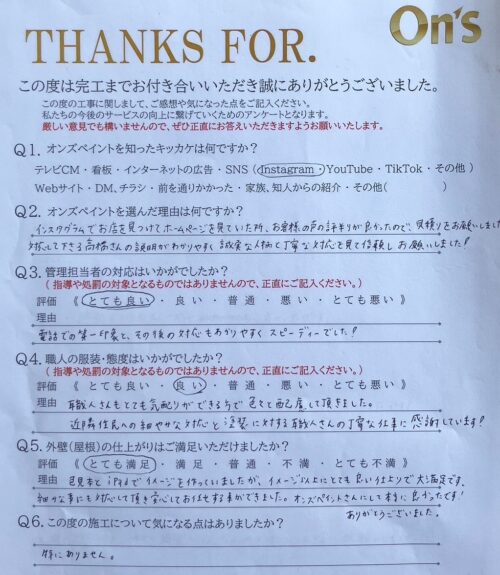 On's
THANKS FOR.
この度は完工までお付き合いいただき誠にありがとうございました。
この度の工事に関しまして、ご感想や気になった点をご記入ください。
私たちの今後のサービスの向上に繋げていくためのアンケートとなります。
厳しい意見でも構いませんので、ぜひ正直にお答えいただきますようお願いいたします。
Q1. オンズペイントを知ったキッカケは何ですか?
テレビCM・看板・インターネットの広告・SNS(Instagram・YouTube・TikTok・その他)
Webサイト・DM、チラシ・前を通りかかった・家族、知人からの紹介・その他( )
Q2. オンズペイントを選んだ理由は何ですか?
インスタグラムでお店を見つけてホームページを見ていた所、お客様の声の評判が良かったので、見積りをお願いしました
対応して下さる高橋さんの説明がわかりやすく誠実な人柄と丁寧な対応を見て信頼しお願いしました!
Q3. 管理担当者の対応はいかがでしたか?
(指導や処罰の対象となるものではありませんので、正直にご記入ください。)
評価 《 とても良い ・ 良い ・ 普通 ・ 悪い ・ とても悪い 》
理由
電話での第一印象と、その後の対応もわかりやすくスピーディーでした!
Q4. 職人の服装・態度はいかがでしたか?
(指導や処罰の対象となるものではありませんので、正直にご記入ください。)
評価 《 とても良い ・ 良い ・ 普通 ・ 悪い ・ とても悪い 》
理由 職人さんもとても気配りができる方で色々と配慮して頂きました。
近隣住民への細やかな対応と塗装に対する職人さんの丁寧な仕事に感謝しています!
Q5. 外壁(屋根)の仕上がりはご満足いただけましたか?
評価 《 とても満足 ・ 満足 ・ 普通 ・ 不満 ・ とても不満 》
理由 見本とiPadでイメージを作っていましたが、イメージ以上にとても良い仕上りで大満足です。
細かな事にも対応して頂き安心してお任せする事ができました。オンズペイントさんにして本当に良かったです!
ありがとうございました。
Q6. この度の施工について気になる点はありましたか?
特にありません。